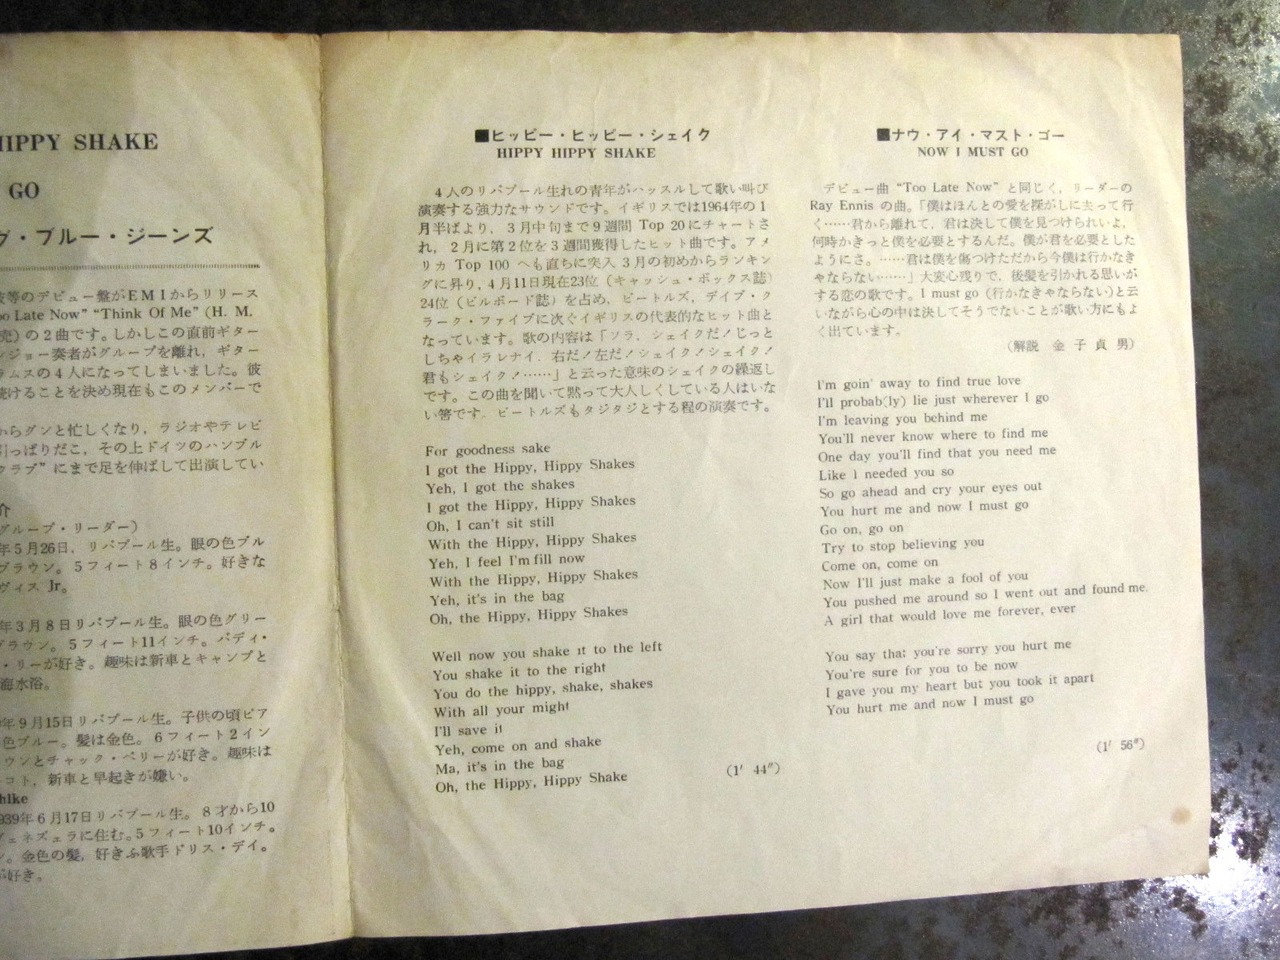 HIPPY SHAKE
GO
グ・ブルー・ジーンズ
彼等のデビュー盤がEMIからリリース
oo Late Now” “Think Of Me” (H. M.
売）の２曲です。しかしこの直前ギター
ンジョー奏者がグループを離れ，ギター
ラムスの４人になってしまいました。彼
続けることを決め現在もこのメンバーで
からグンと忙しくなり，ラジオやテレビ
引っぱりだこ，その上ドイツのハンブル
クラブ”にまで足を伸ばして出演してい
介
グループ・リーダー）
年５月26日，リバプール生。眼の色ブル
ブラウン。５フィート８インチ。好きな
ヴィス Jr。
年３月８日リバプール生。眼の色グリー
ブラウン。５フィート11インチ。バディ・
・リーが好き。趣味は新車とキャンプと
海水浴。
年９月15日リバプール生。子供の頃ピア
色ブルー。髪は金色。６フィート２イン
ウンとチャック・ベリーが好き。趣味は
コト，新車と早起きが嫌い。
hlke
939年６月17日リバプール生。８才から10
ヴェネズェラに住む。５フィート10インチ。
ン。金色の髪，好きふ歌手ドリス・デイ。
が好き。
■ヒッピー・ヒッピー・シェイク
HIPPY HIPPY SHAKE
４人のリバプール生れの青年がハッスルして歌い叫び
演奏する強力なサウンドです。イギリスでは1964年の１
月半ばより，３月中旬まで９週間 Top 20にチャートさ
れ，２月に第２位を３週間獲得したヒット曲です。アメ
リカ Top 100 へも直ちに突入３月の初めからランキン
グに昇り，４月11日現在23位（キャッシュ・ボックス誌）
24位（ビルボード誌）を占め，ビートルズ，デイブ・ク
ラーク・ファイブに次ぐイギリスの代表的なヒット曲と
なっています。歌の内容は「ソラ，シェイクだ！じっと
しちゃイラレナイ，右だ！左だ！シェイク！シェイク！
君もシェイク！……」と云った意味のシェイクの繰返し
です。この曲を聞いて黙って大人しくしている人はいな
い筈です。ビートルズもタジタジとする程の演奏です。
For goodness sake
I got the Hippy, Hippy Shakes
Yeh, I got the shakes
I got the Hippy, Hippy Shakes
Oh, I can't sit still
With the Hippy, Hippy Shakes
Yeh, I feel I'm fill now
With the Hippy, Hippy Shakes
Yeh, it's in the bag
Oh, the Hippy, Hippy Shakes
Well now you shake it to the left
You shake it to the right
You do the hippy, shake, shakes
With all your might
I'll save it
Yeh, come on and shake
Ma, it's in the bag
Oh, the Hippy, Hippy Shake
(1′ 44″)
■ナウ・アイ・マスト・ゴー
NOW I MUST GO
デビュー曲 “Too Late Now” と同じく，リーダーの
Ray Ennis の曲。「僕はほんとの愛を探がしに去って行
く……君から離れて，君は決して僕を見つけられいよ，
何時かきっと僕を必要とするんだ。僕が君を必要とした
ようにさ。……君は僕を傷つけただから今僕は行かなき
ゃならない……」大変心残りで，後髪を引かれる思いが
する恋の歌です。I must go（行かなきゃならない)と云
いながら心の中は決してそうでないことが歌い方にもよ
く出ています。
（解説 金子貞男）
I'm goin' away to find true love
I'll probab(ly) lie just wherever I go
I'm leaving you behind me
You'll never know where to find me
One day you'll find that you need me
Like I needed you so
So go ahead and cry your eyes out
You hurt me and now I must go
Go on, go on
Try to stop believing you
Come on, come on
Now I'll just make a fool of you
You pushed me around so I went out and found me.
A girl that would love me forever, ever
You say that you're sorry you hurt me
You're sure for you to be now
I gave you my heart but you took it apart
You hurt me and now I must go
(1′ 56″)